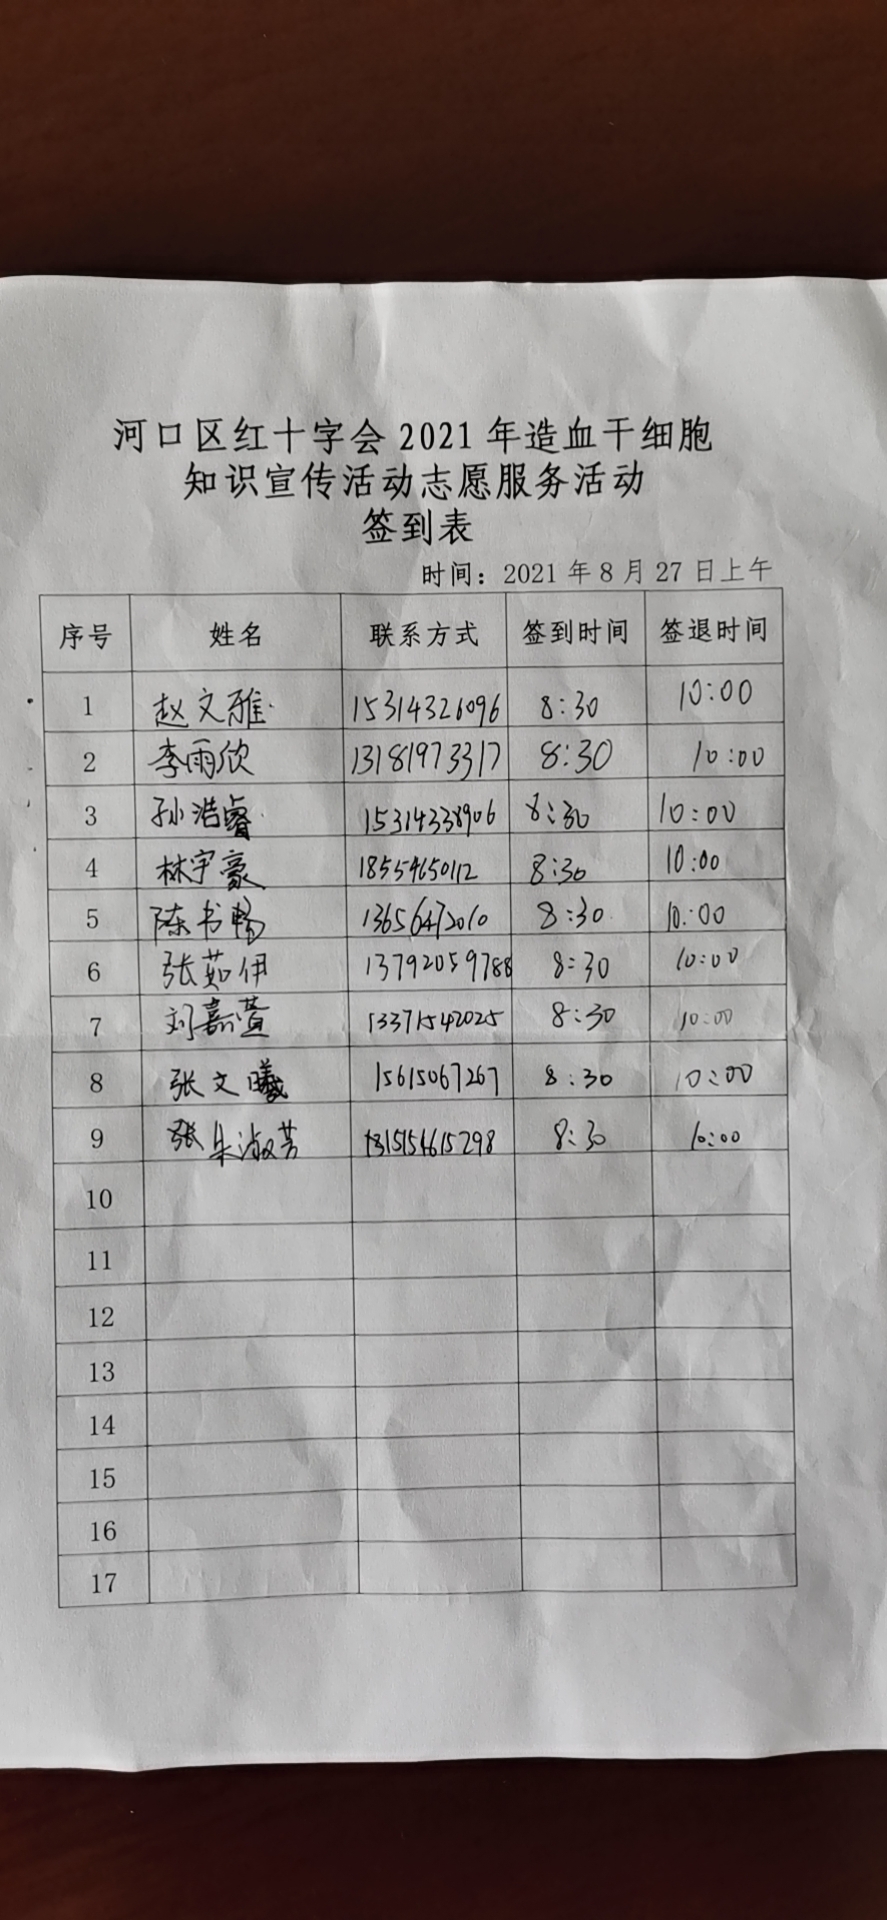 河口区红十字会 2021 年造血干细胞
知识宣传活动志愿服务活动
签到表
时间：2021 年 8 月 27 日上午
序号 姓名 联系方式 签到时间 签退时间
1 赵文雅 15314326096 8:30 10:00
2 李雨欣 13181973317 8:30 10:00
3 孙浩睿 15314338906 8:30 10:00
4 林宇豪 18554650112 8:30 10:00
5 陈书畅 13656472010 8:30 10:00
6 张茹伊 13792059788 8:30 10:00
7 刘嘉萱 13371542025 8:30 10:00
8 张文曦 15615067267 8:30 10:00
9 朱淑芳 8:30 10:00
10
11
12
13
14
15
16
17